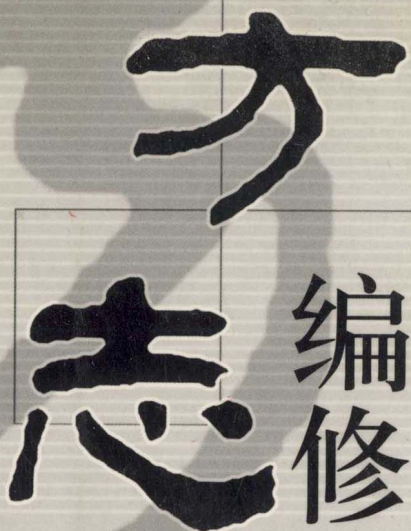 方志
编修